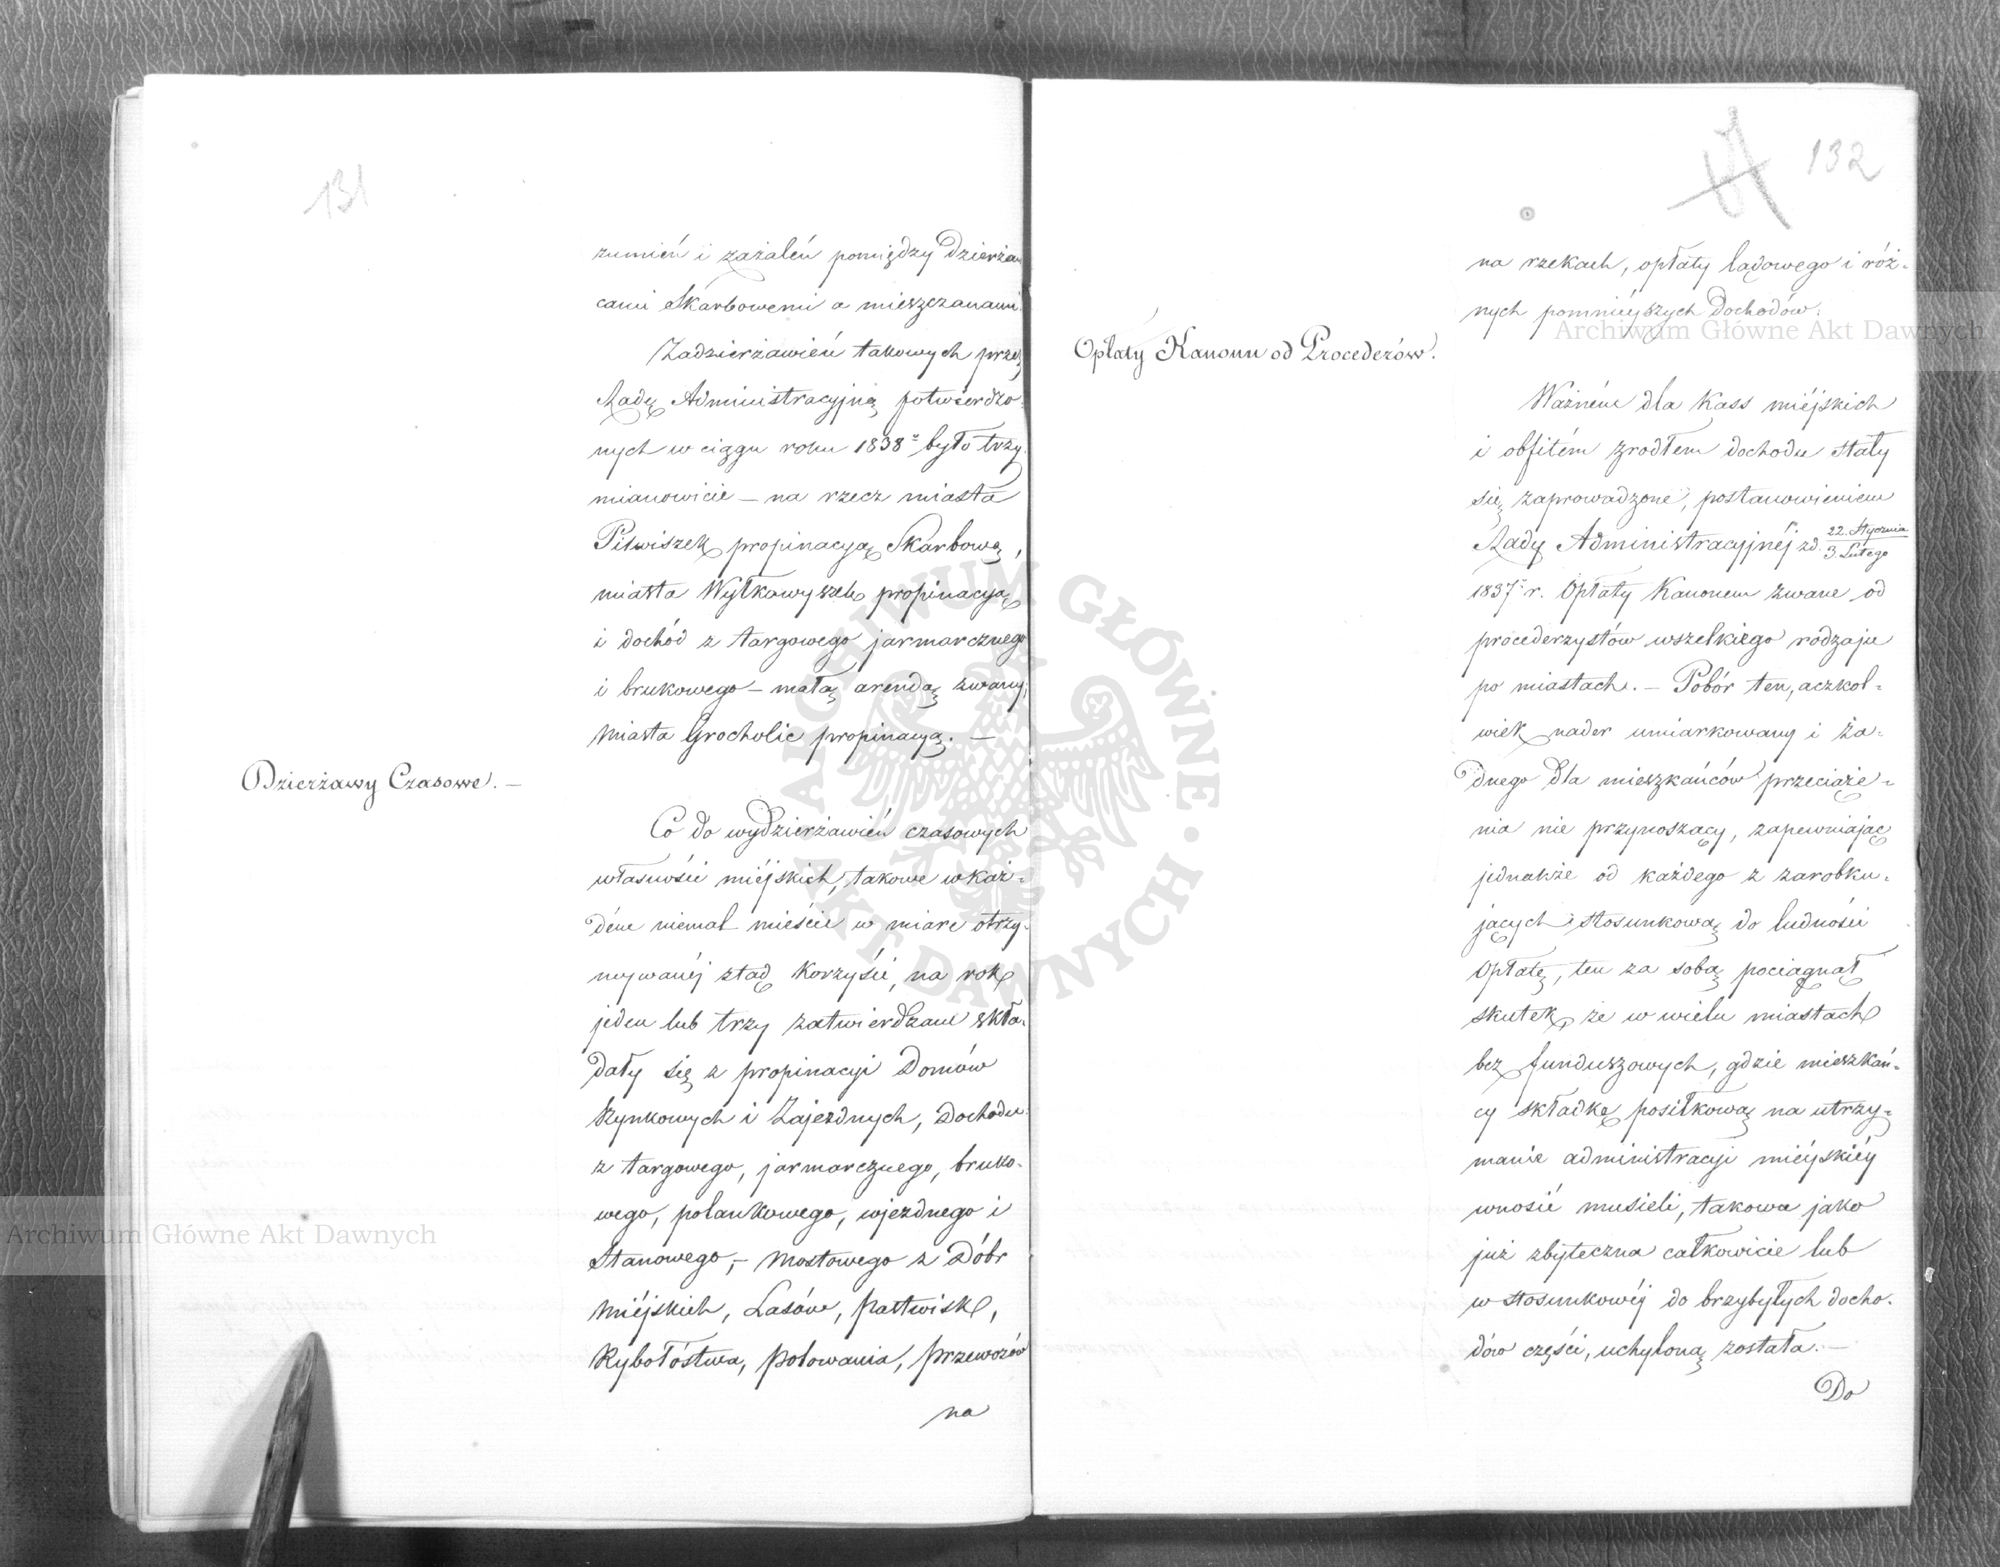 131
zumień i zażaleń pomiędzy Dzierżaw
cami Skarbowemi a mieszczanami.
Zadzierżawień takowych przez
Radę Administracyjną potwierdzo-
nych w ciągu roku 1838 r było trzy
mianowicie — na rzecz miasta
Pilwiszek propinacyą Skarbową,
miasta Wyłkawyszek propinacyą
i dochód z targowego jarmarcznego
i brukowego — małą arendą zwany,
Miasta Grocholic propinacyą. —
Dzierżawy Czasowe. —
Co do wydzierżawień czasowych
własności miéjskich, takowe w każ-
dém niemal mieście w miarę otrzy-
mywanéj ztąd korzyści, na rok
jeden lub trzy zatwierdzane skła-
dały się z propinacyi Domów
Rynkowych i Zajezdnych, Dochodu
z targowego, jarmarcznego, bruko-
wego, polankowego, wjezdnego i
Stanowego, — mostowego z Dóbr
Miéjskich, Lasów, Pastwisk,
Rybołóstwa, Polowania, Przewozów
na
132
na rzekach, opłaty lądowego i róż-
nych pomniéyszych Dochodów.
Opłaty Kanonu od Procederów.
Ważném dla Kass miéjskich
i obfitém zrodłem dochodu stały
się zaprowadzone, postanowieniem
Rady Administracyjnéj z d. 22. Stycznia
3. Lutego
1837 r. Opłaty Kanonem zwane od
procederzystów wszelkiego rodzaju
po miastach. — Pobór ten, aczkol-
wiek nader umiarkowany i ża-
dnego dla mieszkańców przeciąże-
nia nie przynoszący, zapewniając
jednakże od każdego z zarobku-
jących stosunkową do ludności
Opłatę, ten za sobą pociągnął
skutek, że w wielu miastach
bez funduszowych, gdzie mieszkań-
cy składkę posiłkową na utrzy-
manie administracyi miéyskiéy
wnosić musieli, takowa jako
już zbyteczna całkowicie lub
w stosunkowéj do brzybyłych docho-
dów części, uchyloną została. —
Do
Archiwum Główne Akt Dawnych
Archiwum Główne Akt Dawnych
ARCHIWUM GŁÓWNE · AKT DAWNYCH ·